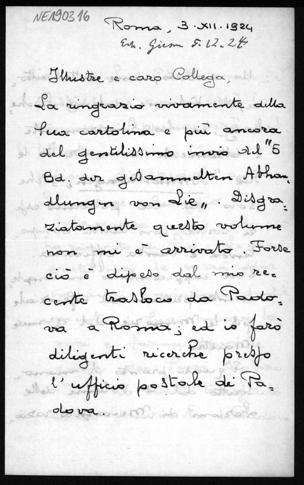 NE190316
Roma, 3-XII.1924
5.12.24
Illustre e caro Collega,
La ringrazio vivamente della
Sua cartolina e più ancora
del gentilissimo invio del "5
Bd. der gesammelten Abhan-
dlungn von Lie„. Disgra-
ziatamente questo volume
non mi è arrivato. Forse
ciò è dipeso dal mio re-
cente trasloco da Pado-
va a Roma; ed io farò
diligenti ricerche presso
l'ufficio postale di Pa-
dova.